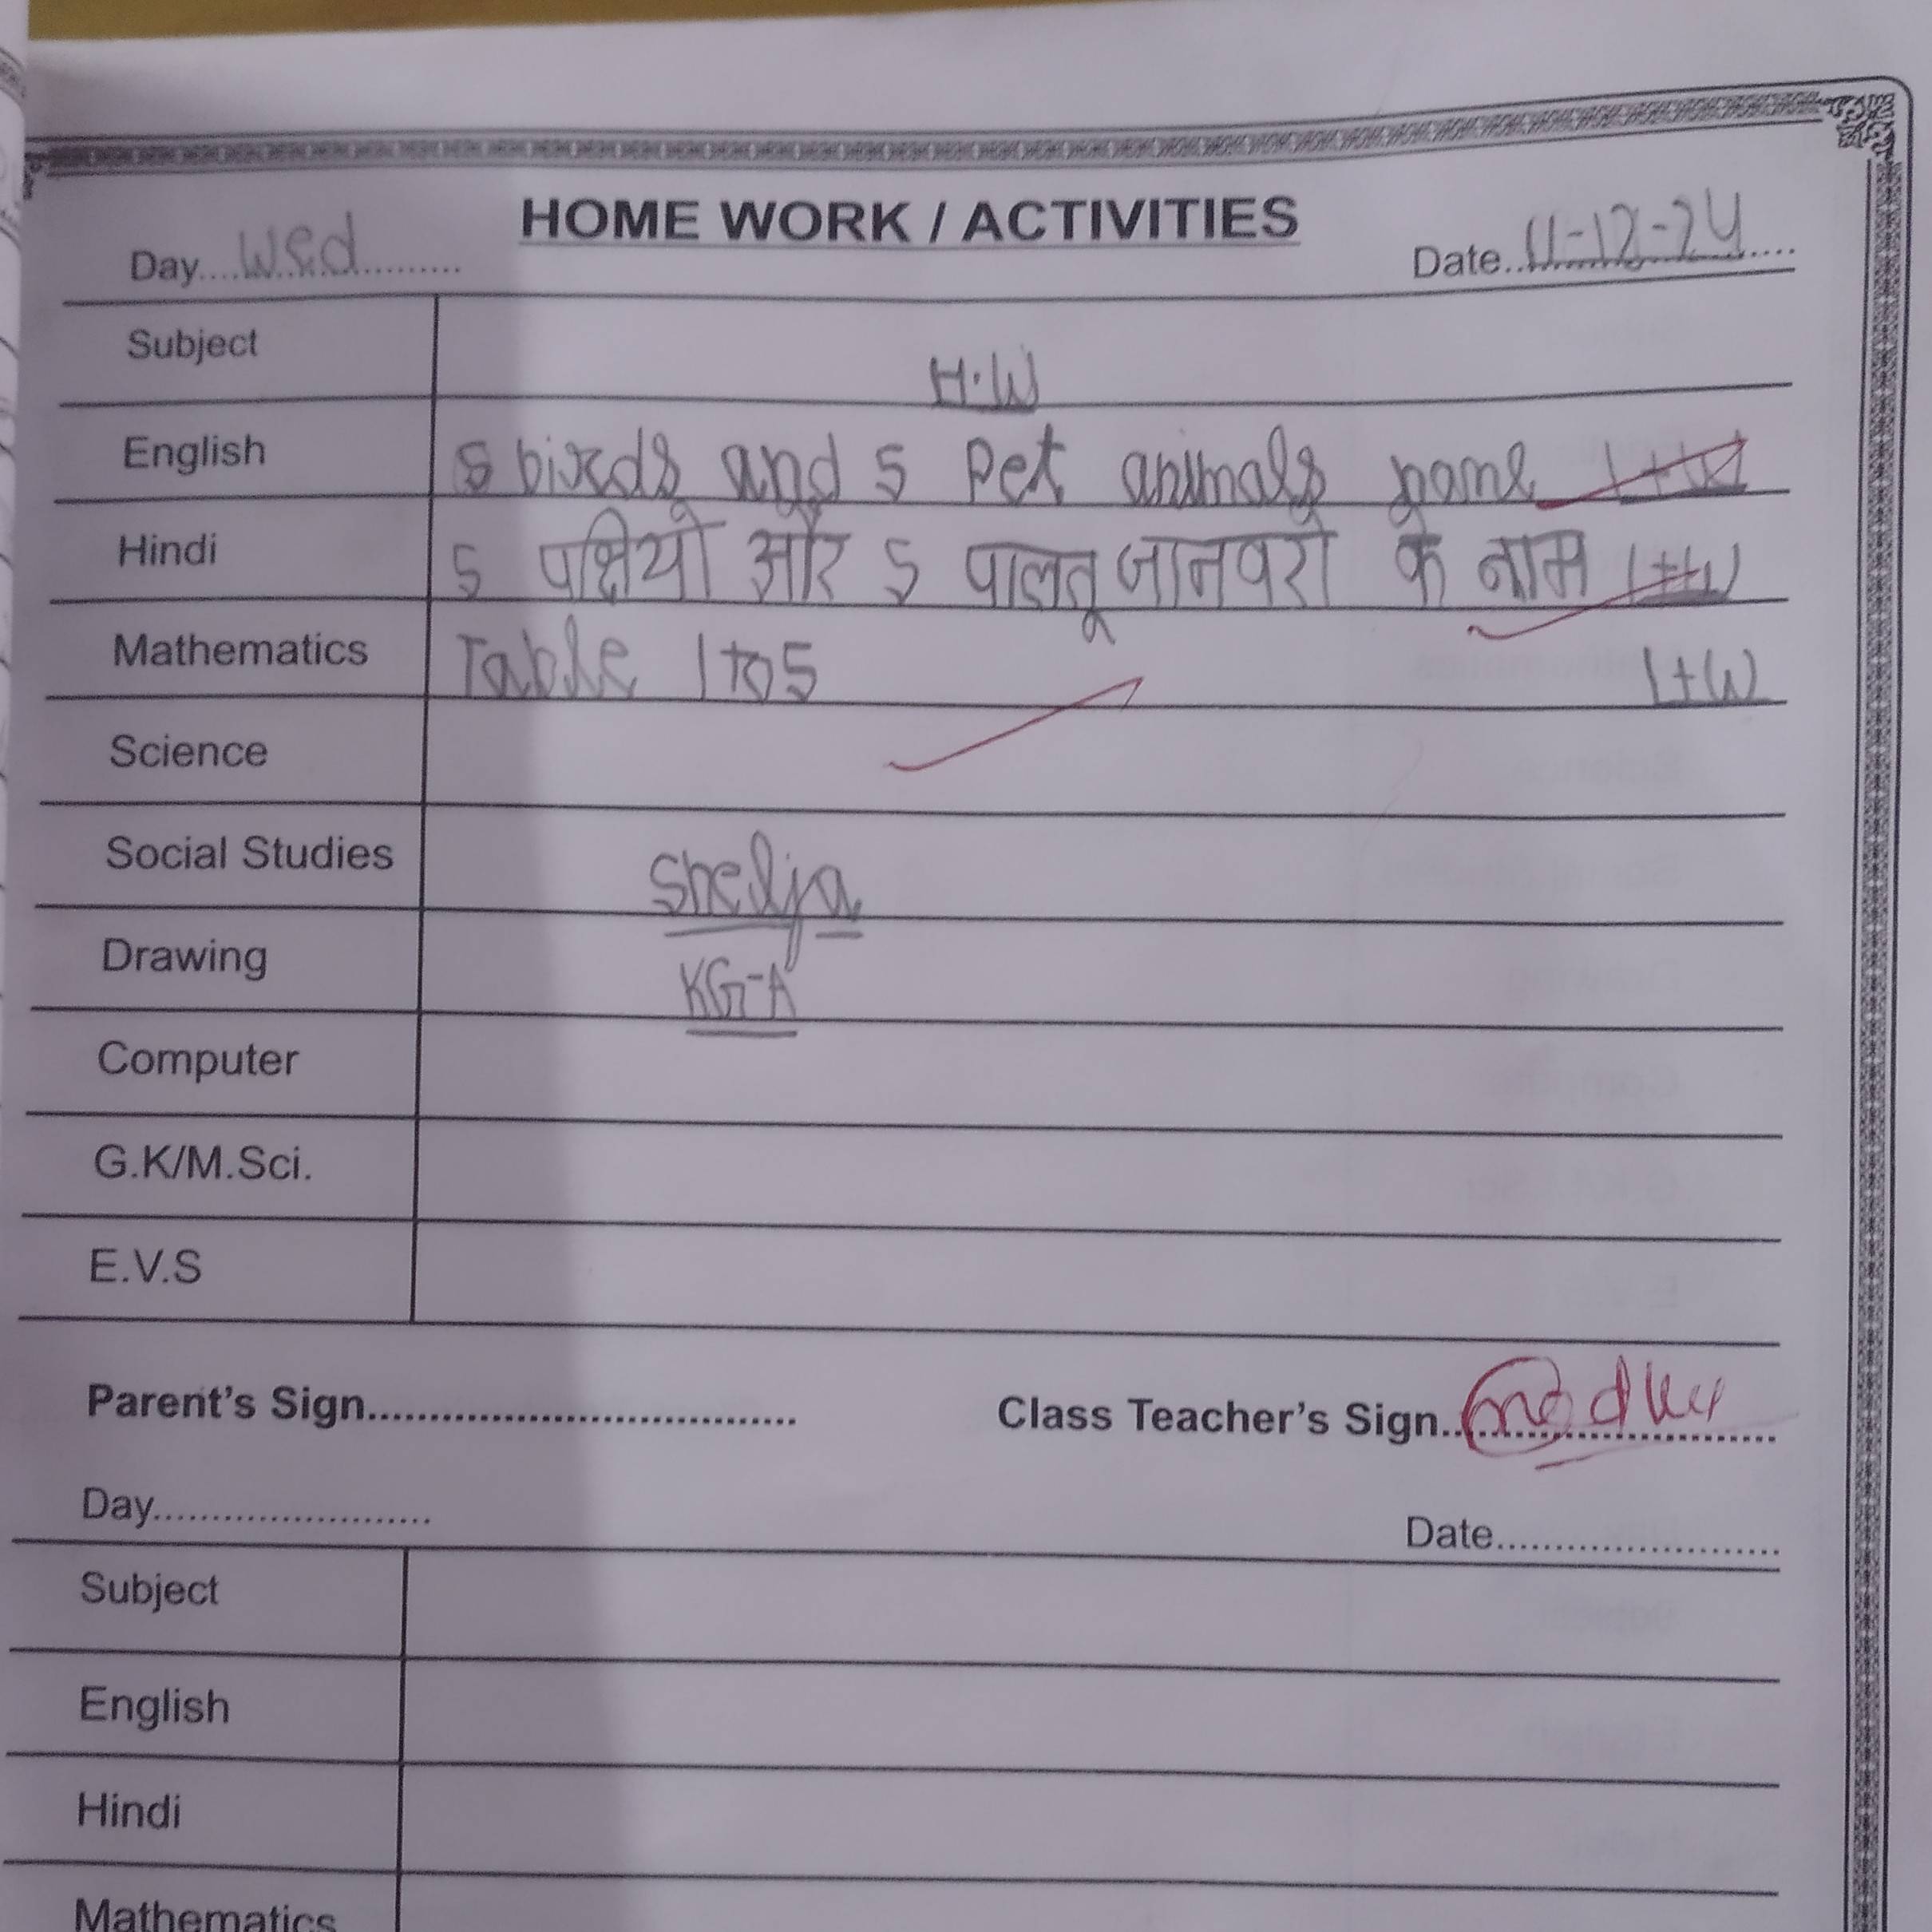 HOME WORK / ACTIVITIES
Day....Wed.......... Date..11-12-24....
Subject H.W
English 5 birds and 5 Pet animals name L+W
Hindi 5 पक्षियो और 5 पालतू जानवरो के नाम L+W
Mathematics Table 1 to 5 L+W
Science
Social Studies Shelja
Drawing KG-A
Computer
G.K/M.Sci.
E.V.S
Parent's Sign................................... Class Teacher's Sign..............................
Day........................ Date........................
Subject
English
Hindi
Mathematics